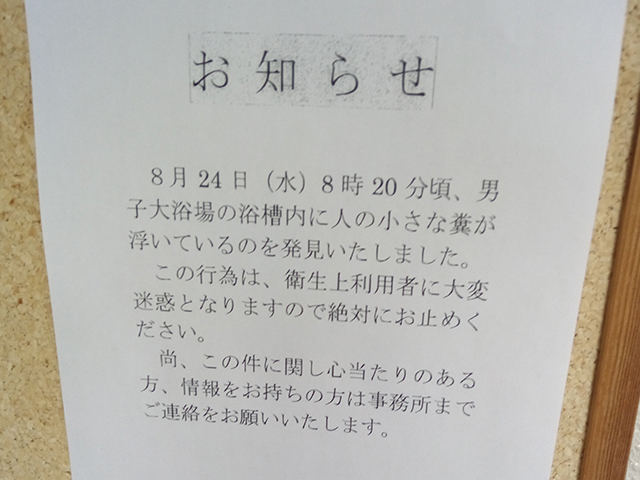 お知らせ
８月24日（水）８時20分頃、男
子大浴場の浴槽内に人の小さな糞が
浮いているのを発見いたしました。
この行為は、衛生上利用者に大変
迷惑となりますので絶対にお止めく
ださい。
尚、この件に関し心当たりのある
方、情報をお持ちの方は事務所まで
ご連絡をお願いいたします。